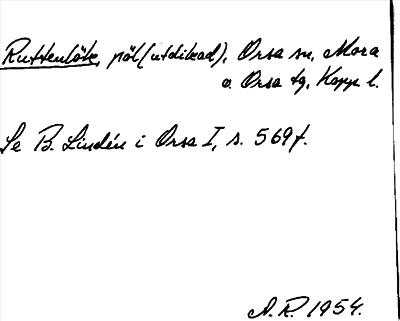 Ruttenlök, pöl (utdikad), Orsa sn, Mora
o. Orsa tg, Kopp. l.
Se B. Lindén i Orsa I, s. 569f.
A.R. 1954.